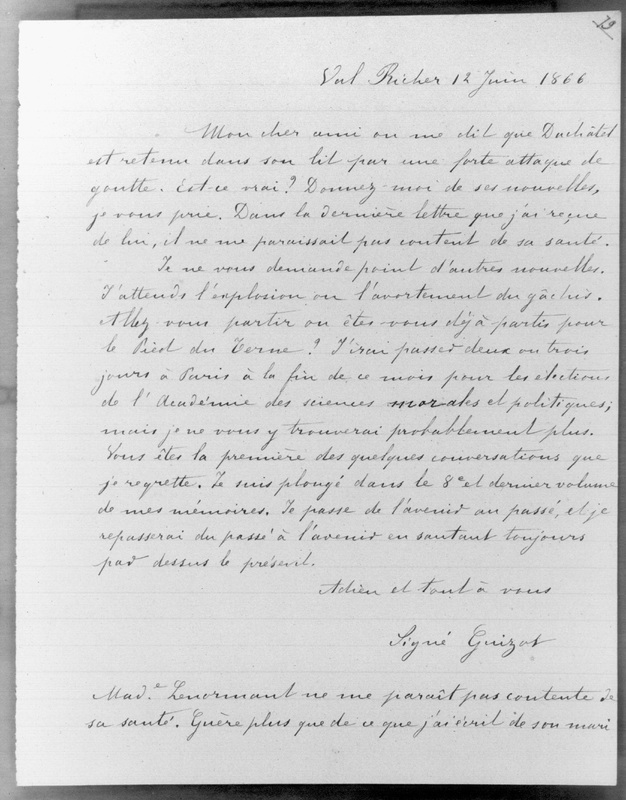 19
Val Richer 12 Juin 1866
Mon cher ami on me dit que Duchâtel
est retenu dans son lit par une forte attaque de
goutte. Est-ce vrai? Donnez-moi de ses nouvelles,
je vous prie. Dans la dernière lettre que j'ai reçue
de lui, il ne me paraissait pas content de sa santé.
Je ne vous demande point d'autres nouvelles.
J'attends l'explosion ou l'avortement du gâchis.
Allez-vous partir ou êtes-vous déjà partis pour
le Pied du Terne? J'irai passer deux ou trois
jours à Paris à la fin de ce mois pour les élections
de l'Académie des sciences morales et politiques;
mais je ne vous y trouverai probablement plus.
Vous êtes la première des quelques conversations que
je regrette. Je suis plongé dans le 8e et dernier volume
de mes mémoires. Je passe de l'avenir au passé, et je
repasserai du passé à l'avenir en sautant toujours
par dessus le présent.
Adieu et tout à vous
Signé Guizot
Made Lenormant ne me paraît pas contente de
sa santé. Guère plus que de ce que j'ai écrit de son mari